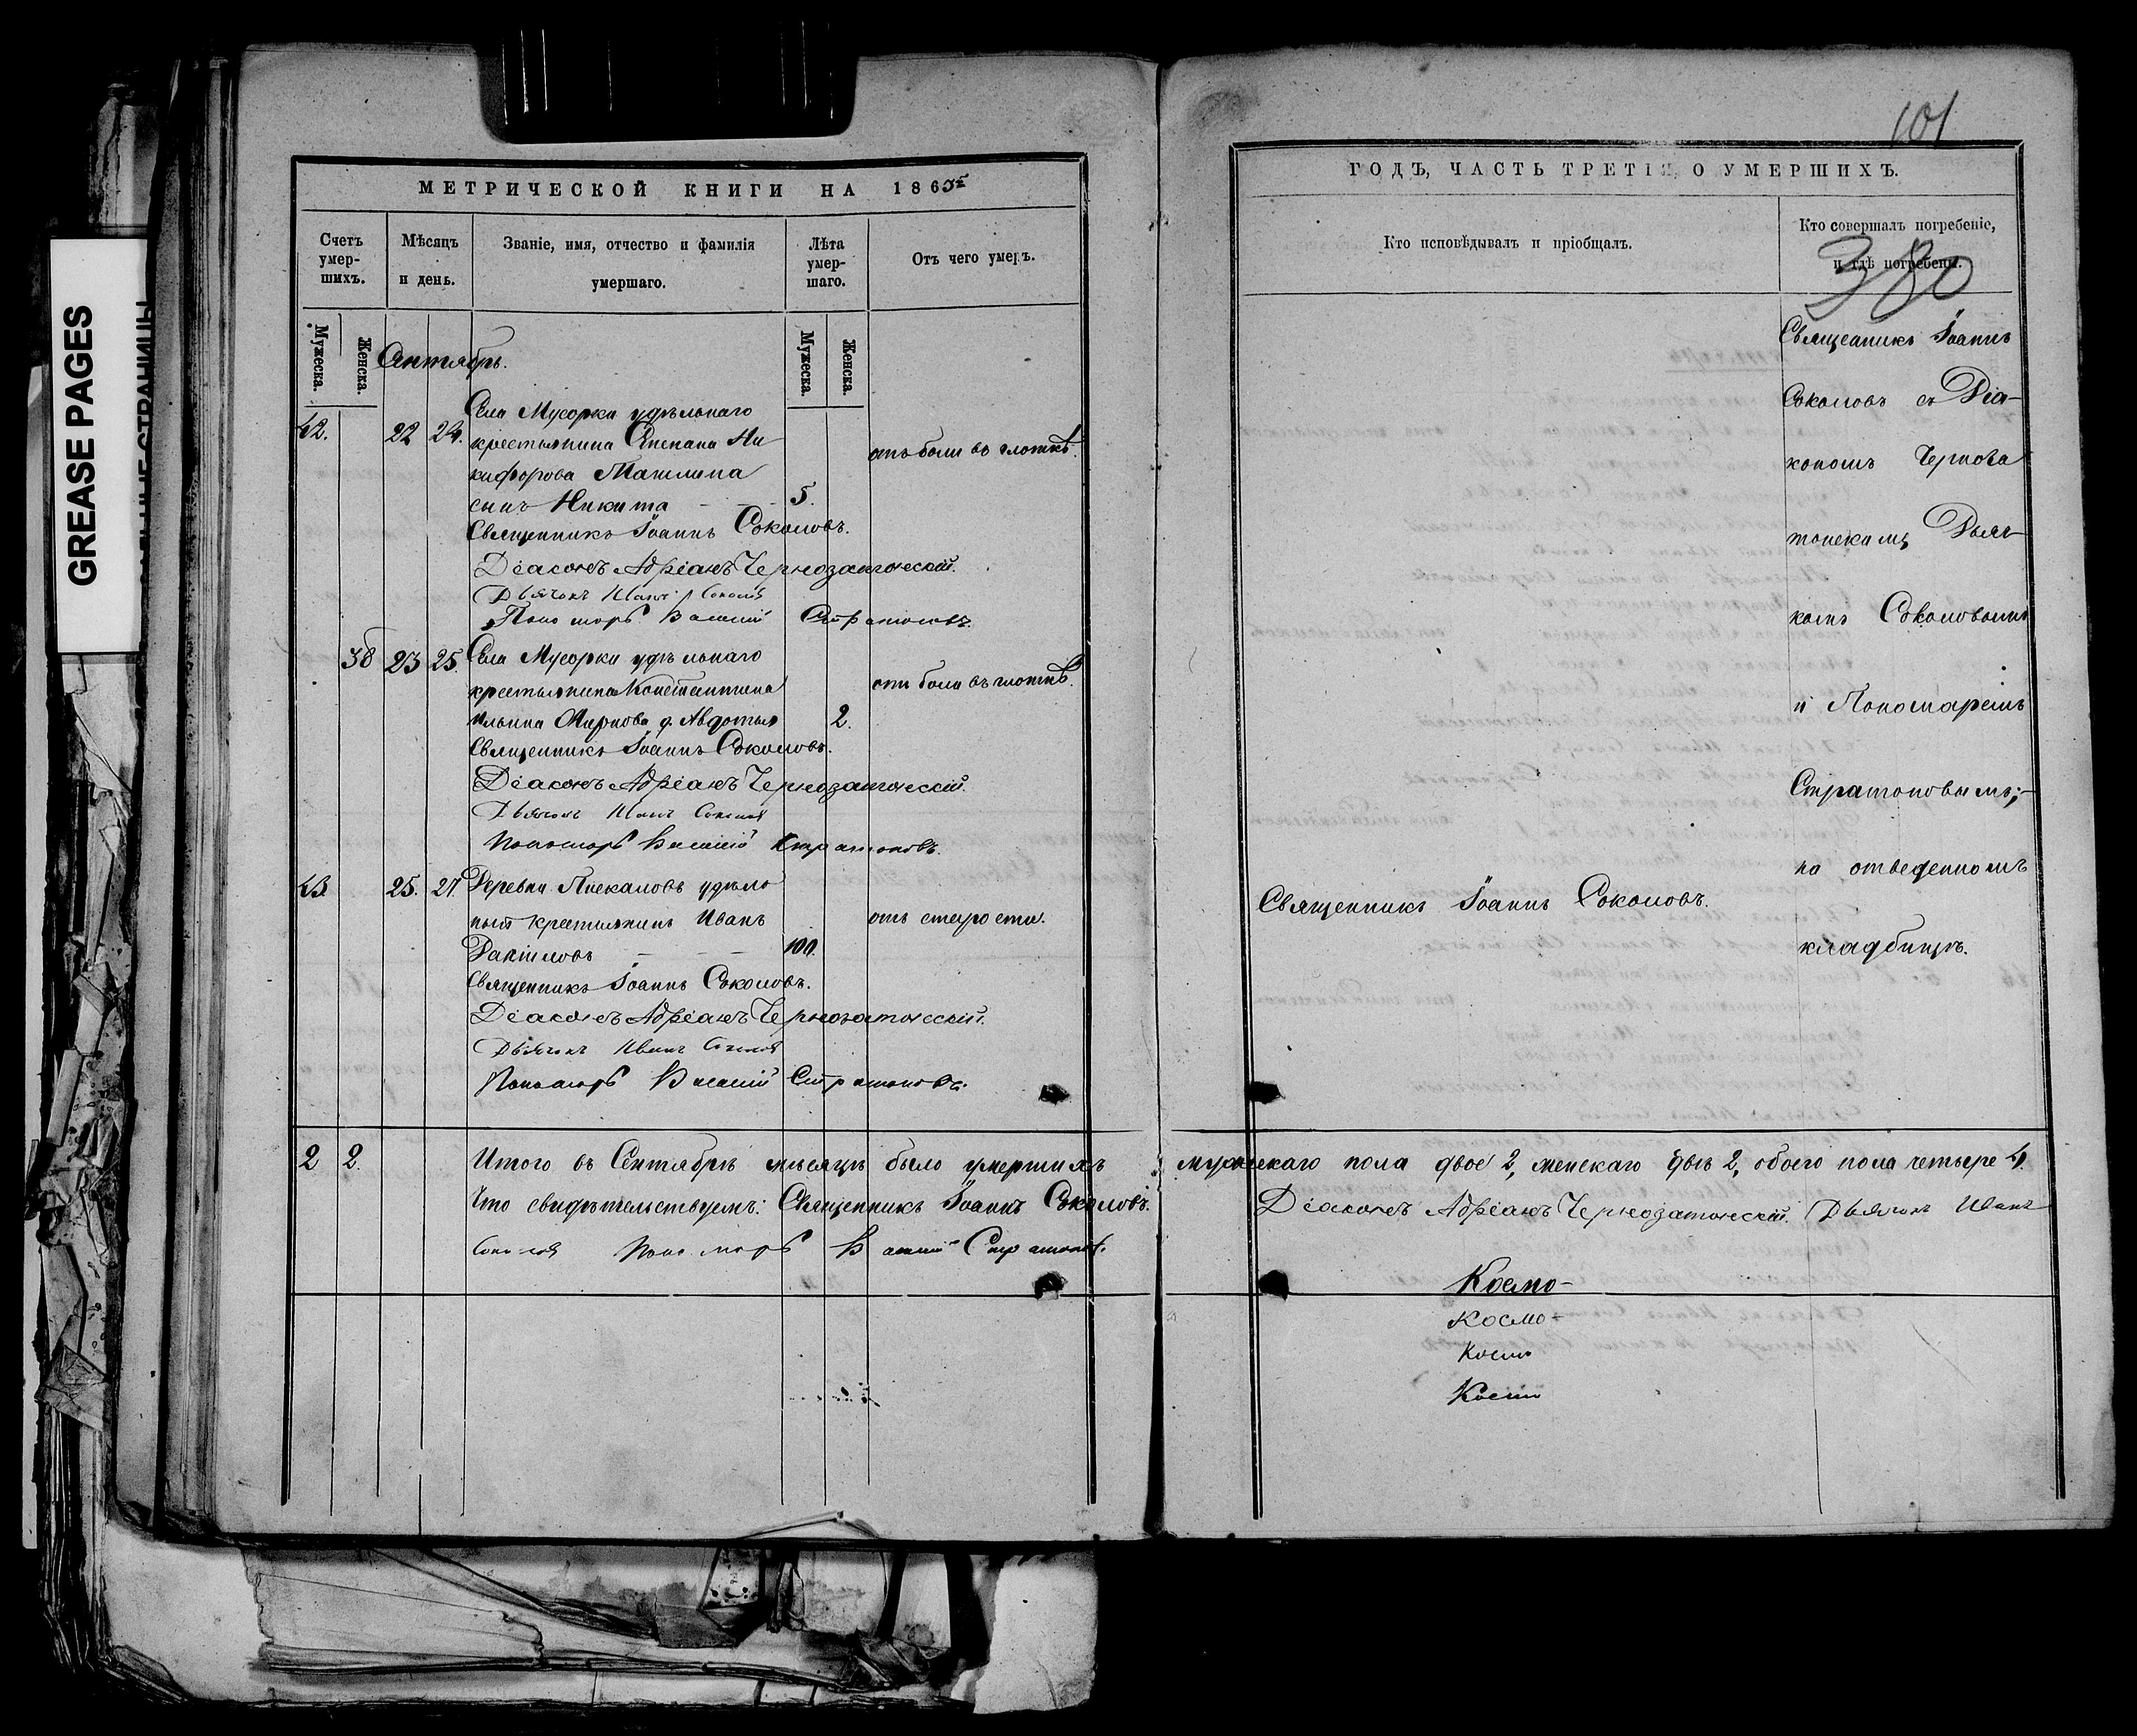 GREASE PAGES
101
МЕТРИЧЕСКОЙ КНИГИ НА 1865
Счетъ умер-шихъ.
Мѣсяцъ и день.
Званіе, имя, отчество и фамилія умершаго.
Лѣта умер-шаго.
Отъ чего умеръ.
Мужеска.
Женска.
Мужеска.
Женска.
Сентябрь.
42. 22 24. Села Мусорки удѣльнаго
крестьянина Степана Ни-
кифорова
сынъ Никита 5.
отъ боли въ глоткѣ.
Священникъ Іоаннъ Соколовъ.
Діаконъ Адріанъ Чернозатонскій.
Дьячокъ Иванъ Соколовъ
Пономарь Василій Стратоновъ.
38 23 25. Села Мусорки удѣльнаго
крестьянина Константина
Ильина д. Авдотья 2.
отъ боли въ глоткѣ.
Священникъ Іоаннъ Соколовъ.
Діаконъ Адріанъ Чернозатонскій.
Дьячокъ Иванъ Соколовъ
Пономарь Василій Стратоновъ.
43. 25. 27. Деревни Пискаловъ удѣль
ный крестьянинъ Иванъ
Даниловъ 100.
отъ старости.
Священникъ Іоаннъ Соколовъ.
Діаконъ Адріанъ Чернозатонскій.
Дьячокъ Иванъ Соколовъ
Пономарь Василій Стратоновъ.
2 2. Итого въ Сентябрѣ мѣсяцѣ было умершихъ
Что свидѣтельствуемъ: Священникъ Іоаннъ Соколовъ.
Соколовъ Пономарь Василій Стратоновъ.
ГОДЪ, ЧАСТЬ ТРЕТІЯ, О УМЕРШИХЪ.
Кто исповѣдывалъ и пріобщалъ.
Кто совершалъ погребеніе, и гдѣ погребены.
380
Священникъ Іоаннъ
Соколовъ съ Діа-
кономъ Черноза
тонскимъ, Дьяч-
комъ Соколовымъ
и Пономаремъ
Стратоновымъ;-
на отведенномъ
кладбищѣ.
Священникъ Іоаннъ Соколовъ.
мужескаго пола двое 2, женскаго двѣ 2, обоего пола четыре 4.
Діаконъ Адріанъ Чернозатонскій. Дьячокъ Иванъ
Космо-
Космо-
Космо
Космо